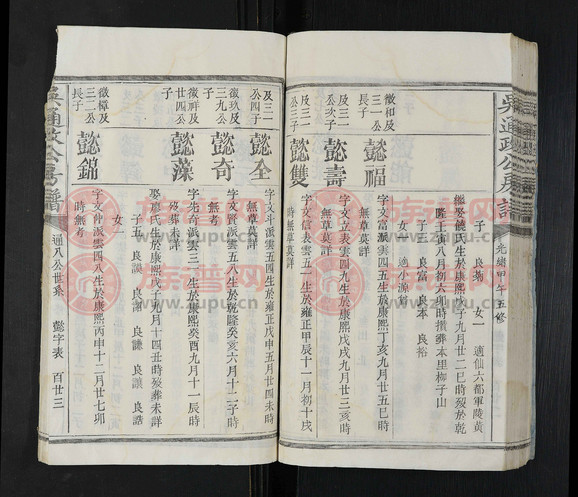 吳通政公房譜
光緒甲午五修
子一 良
女一 適仙六都軍陵黃
繼娶饒氏生於康熙戊子九月廿二巳時歿於乾
隆壬寅八月初六卯時攢葬本里柳子山
子三 良富 良本 良裕
女一 適小源
徽和及三一公長子
懿福
字文富派雲四五生於康熙丁亥九月廿五巳時
無草莫詳
及三一公次子
懿壽
字文立表雲四九生於康熙戊戌九月廿三亥時
無草莫詳
及三一公三子
懿雙
字文信表雲五一生於雍正甲辰十一月初十戌
時無草莫詳
及三一公四子
懿全
字文斗派雲五八生於雍正戊申五月廿四未時
無草莫詳
徽玖及三九公子
懿奇
字文賢派雲五八生於乾隆癸亥六月十二子時
無考
徽祥及廿四公子
懿藻
字先奇派雲三一生於康熙癸酉九月十一辰時
歿葬未詳
娶廖氏生於康熙戊子九月十四丑時歿葬未詳
子五 良謨 良謝 良謙 良讓 良誥
女一
徽樟及三二公長子
懿錦
字文仲派雲四八生於康熙丙申十二月廿七卯
時無考
吳通政公房譜
通八公世系 懿字表 百廿三
族谱网
www.zupu.cn
族谱网
www.zupu.cn